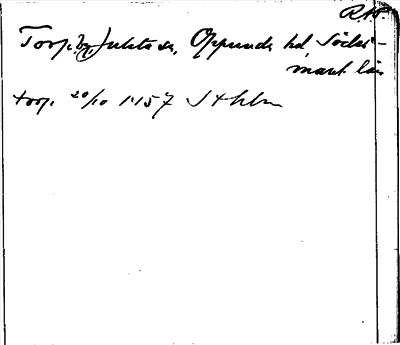 R.AP.
Torp, by, Jukta sn, Oppunda hd, Söder-
manl. län
torp 20/10 1457 Sthlm